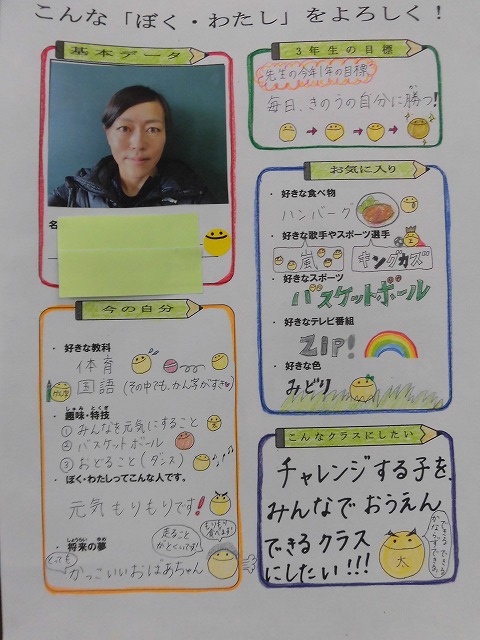 こんな「ぼく・わたし」をよろしく！
基本データ
名
今の自分
・好きな教科
体育
国語（その中でも、かん字がすき♥）
かん字
しゅみ とくぎ
・趣味・特技
①みんなを元気にすること
②バスケットボール
③おどること（ダンス）
・ぼく・わたしってこんな人です。
元気もりもりです！
しょうらい ゆめ
・将来の夢
とっても
かっこいいおばあちゃん
走ることがとくいです！
もりもり食べます！
３年生の目標
先生の今年1年の目標
毎日、きのうの自分に勝つ！
か
お気に入り
・好きな食べ物
ハンバーグ
・好きな歌手やスポーツ選手
嵐
キングカズ
・好きなスポーツ
バスケットボール
・好きなテレビ番組
ZIP!
・好きな色
みどり
こんなクラスにしたい
チャレンジする子を、
みんなでおうえん
できるクラス
にしたい!!!
太
できるできるかならずできる!